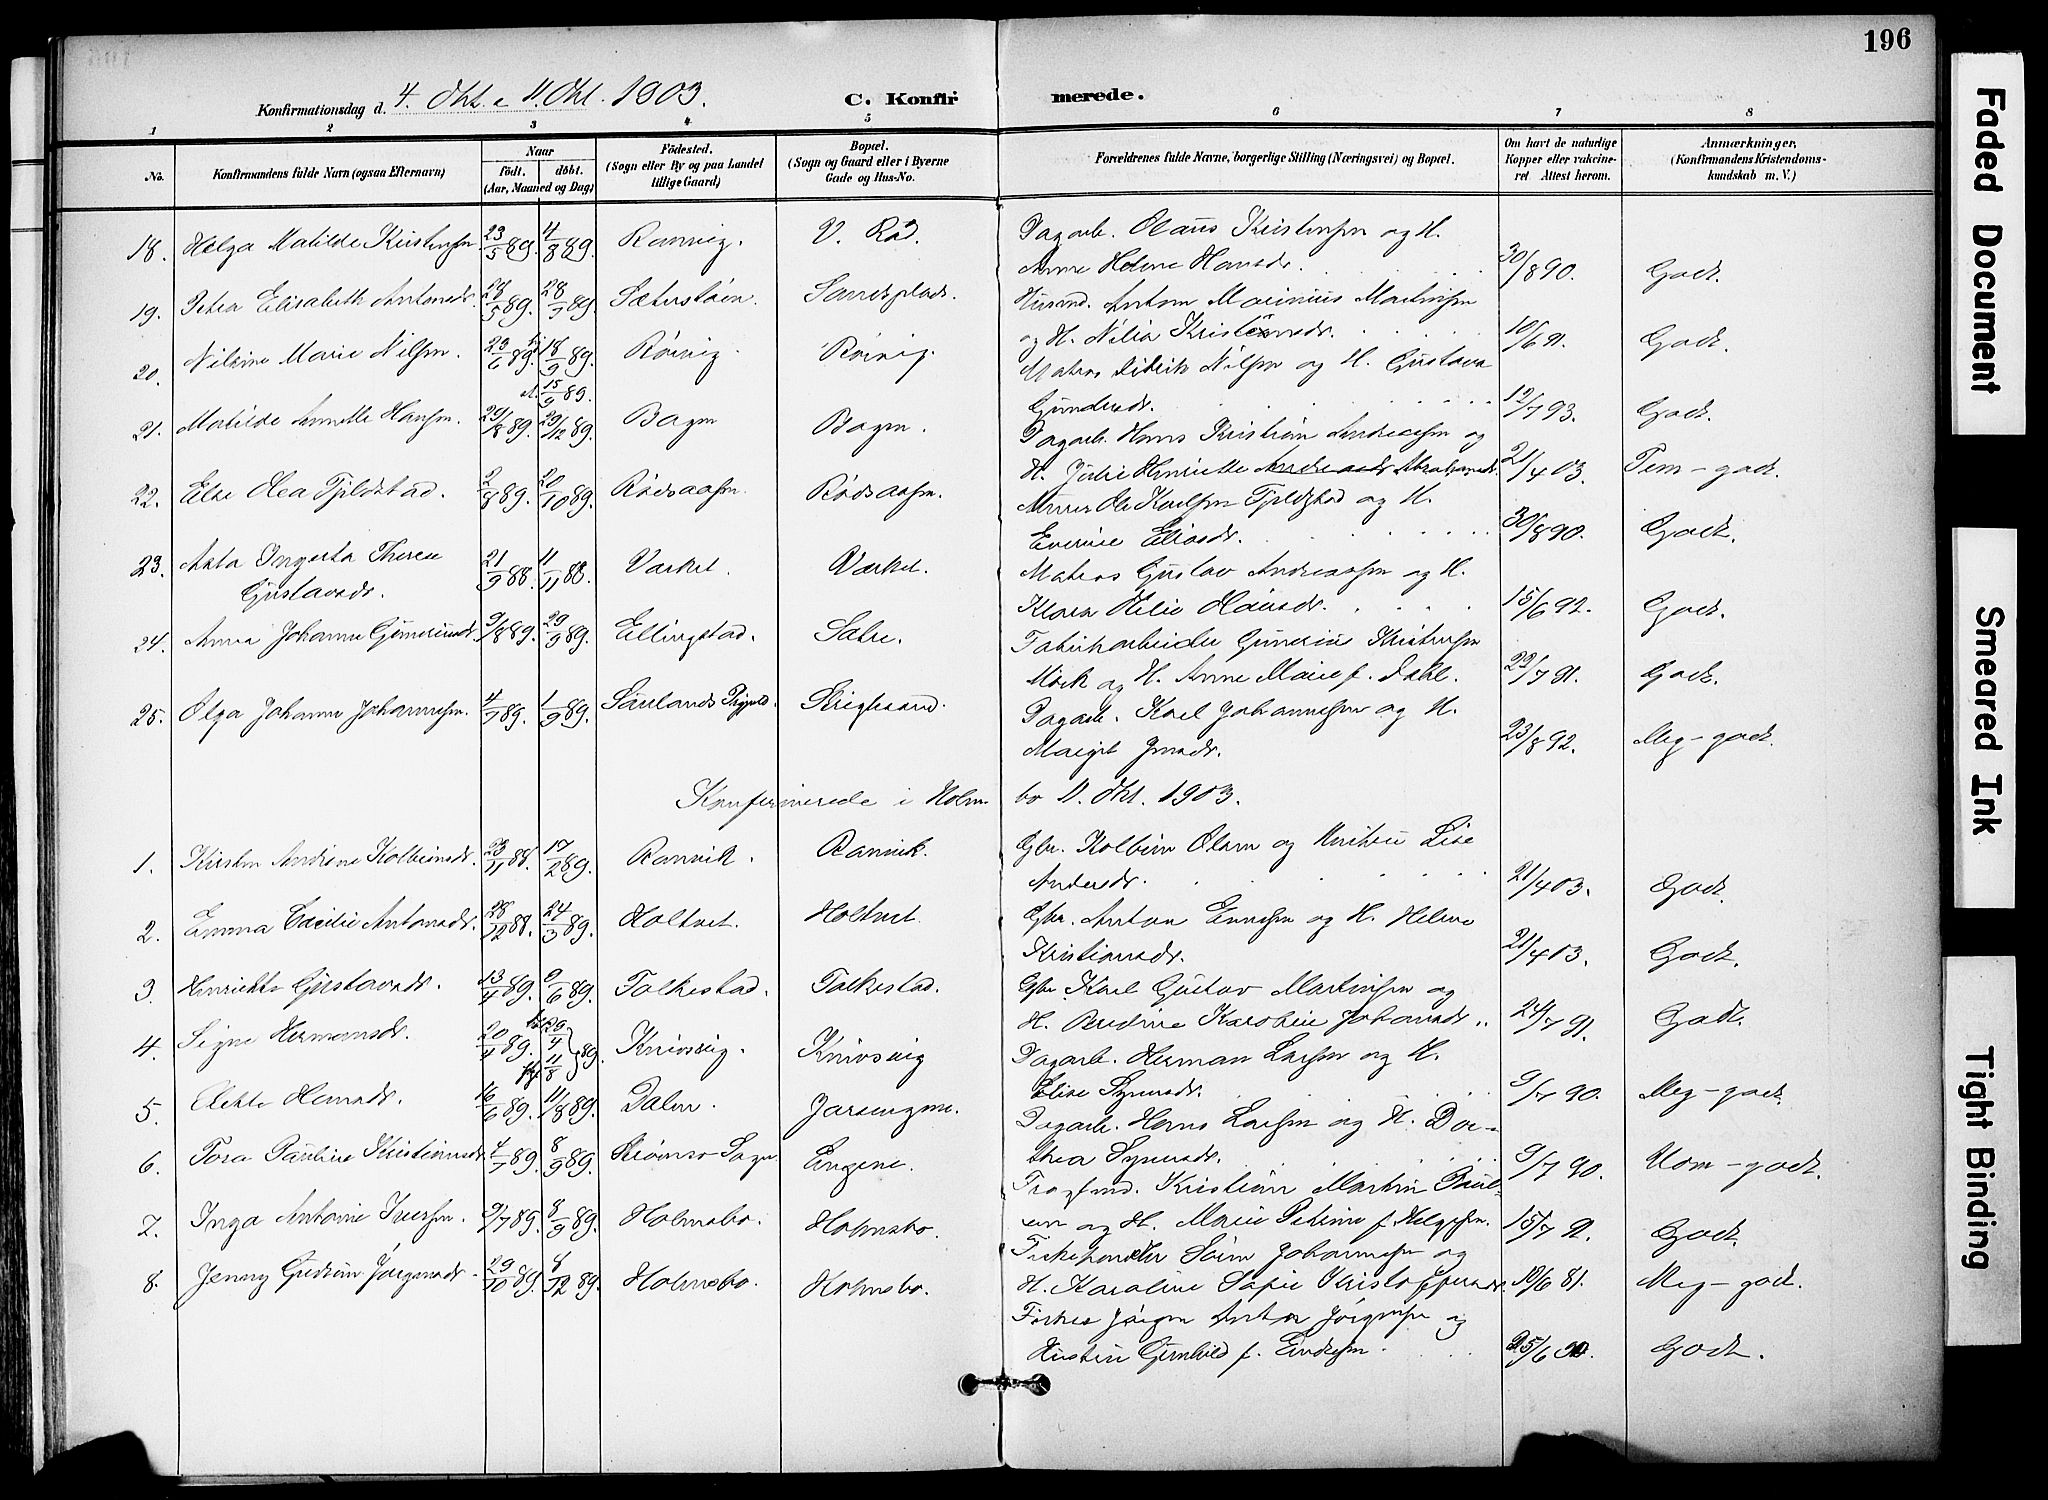 196
Konfirmationsdag d. 4. Okt. & 11. Okt. 1903.
C. Konfirmerede.
1 2 3 4 5 6 7 8
No.
Konfirmandens fulde Navn (ogsaa Efternavn)
Naar
født. døbt.
(Aar, Maaned og Dag)
Fødested.
(Sogn eller By og paa Landet
tillige Gaard)
Bopæl.
(Sogn og Gaard eller i Byerne
Gade og Hus-No.
Forældrenes fulde Navne, borgerlige Stilling (Næringsvei) og Bopæl.
Om havt de naturlige
Kopper eller vakcine-
ret Attest herom.
Anmærkninger,
(Konfirmandens Kristendoms-
kundskab m. V.)
18. Helga Matilde Kristensen 23/5 89. 4/8 89. Ramvig. V. Rød. Dagarb. Olaus Kristensen og H.
Anne Helene Hansdr. 30/8 90. Godt.
19. Petra Elisabeth Antonsdr. /5 89. 28/7 89. Sandsplads. Husmd. Anton Marinius Martinsen
og H. Nilia 10/6 91. Godt.
20. Nilsine Marie Nilsen. 23/6 89. 18/9 89. Rørvig. Rørvig. Matros Didrik Nilsen og H. Gustava
15/9 89.
Gundersdr. 12/7 93. Godt.
21. Matilde Annette Hansen. 29/8 89. 29/12 89. Bogen. Bogen. Dagarb. Hans Kristian Andreassen og
H. Julie Henriette Andreasdr Abrahamsdr. 21/4 03. Tem-godt.
22. Else Olea Fjeldstad. 2/8 89. 20/10 89. Rødsaasen. Rødsaasen. Murer Ole Karlsen Fjeldstad og H.
Everine Eliasdr. 30/8 90. Godt.
23. Asta Ingerta Therese 21/9 88. 11/11 88. Værket. Værket. Matros Gustav Andreassen og H.
Gustavsdr.
Klara Helie Hansdr. 15/6 92. Godt.
24. Anna Johanne Guneriusdr. 9/8 89. 29/9 89. Ellingstad. Sætre. Fabrikarbeider Gunerius Kristensen
Mørk og H. Anne Marie f. Dahl. 22/7 91. Godt.
25. Olga Johanne Johannesen. 4/7 89. 1/9 89. Saulands Prgjeld. Dagarb. Karl Johannesen og H.
Margit Jonsdr. 23/8 92. Meg-godt.
Konfirmerede i Holmsbo 11. Okt. 1903.
1. Kirsten Andrine Kolbeinsdr. 23/11 88. 17/2 89. Ramvik. Ramvik. Gbr. Kolbein Olsen og Hustru Lise
Andersdr. 21/4 03. Godt.
2. Emma Cæcilie Antonsdr. 28/12 88. 24/3 89. Holtnet. Holtnet. Gbr. Anton Evensen og H. Helene
Kristiansdr. 21/4 03. Godt.
3. Henriette Gustavsdr. 13/4 89. 9/6 89. Folkestad. Folkestad. Gbr. Karl Gustav Martinsen og
H. Berdine Karoline Johansdr. 24/7 91. Godt.
4. Signe Hermansdr. 20/4 89. 29/4 11/8 89. Knivsvig. Knivsvig Dagarb. Herman Larsen og H.
Elise Syversdr. 9/7 90. Meg-godt.
5. Hansdr. 16/6 89. 11/8 89. Dalen. Jarsengene. Dagarb. Hans Larsen og H. Dor-
thea Syversdr. 9/7 90. Udm-godt.
6. Tora Pauline Kristiansdr. 4/7 89. 8/9 89. Strømsø Sogn. Engene. Kristian Martin Paul-
sen og H. Marie Petrine f. Helgesen. 15/7 91. Godt.
7. Inga Antonie Iversen. 9/7 89. 8/9 89. Holmsbo. Holmsbo. Fiskehandler Johannesen og
H. Karoline Sofie Kristoffersdr. 10/6 81. Meg-godt.
8. Jenny Gudrun Jørgensdr. 29/10 89. 8/12 89. Holmsbo. Holmsbo. Fisker Jørgen Anton Jørgensen og
Hustru Gunhild f. Eindresen. 25/6 90. Godt.
Faded Document
Smeared Ink
Tight Binding